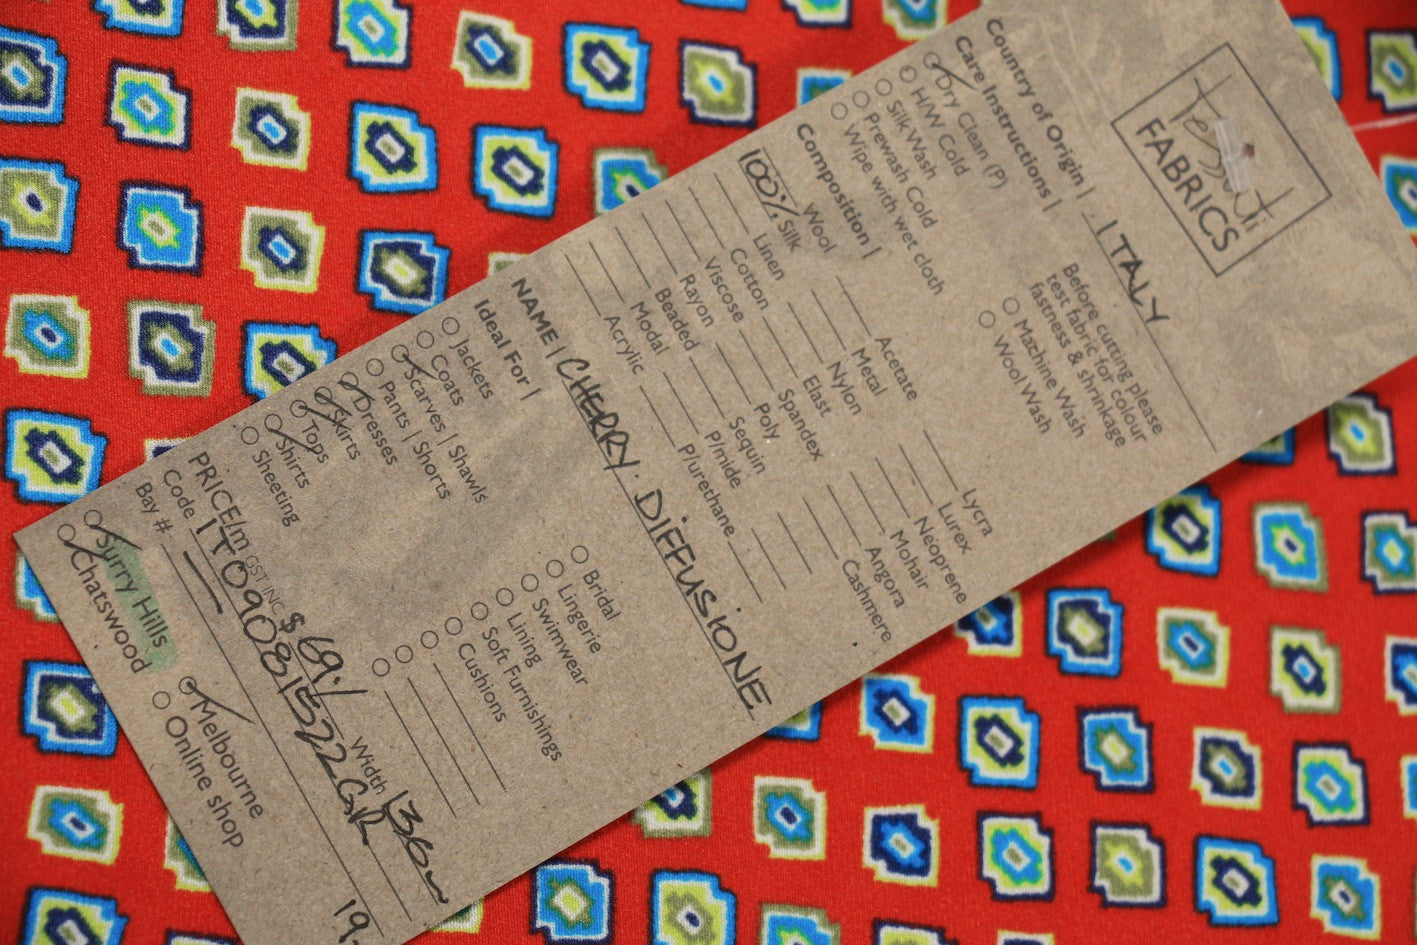 Tessuti
FABRICS
Country of Origin | ITALY
Care Instructions |
Dry Clean (P)
H/W Cold
Silk Wash
Prewash Cold
Wipe with wet cloth
Before cutting please
test fabric for colour
fastness & shrinkage
Machine Wash
Wool Wash
Composition |
Wool
100% Silk
Linen
Cotton
Viscose
Rayon
Beaded
Modal
Acrylic
Acetate
Metal
Nylon
Elast
Spandex
Poly
Sequin
P/mide
P/urethane
Lycra
Lurex
Neoprene
Mohair
Angora
Cashmere
NAME | CHERRY DIFFUSIONE
Ideal For |
Jackets
Coats
Scarves | Shawls
Pants | Shorts
Dresses
Skirts
Tops
Shirts
Sheeting
Bridal
Lingerie
Swimwear
Lining
Soft Furnishings
Cushions
PRICE/m GST INC $ 69./ Width 136
Code 1T09081522GR
Bay #
Surry Hills
Chatswood
Melbourne
Online shop